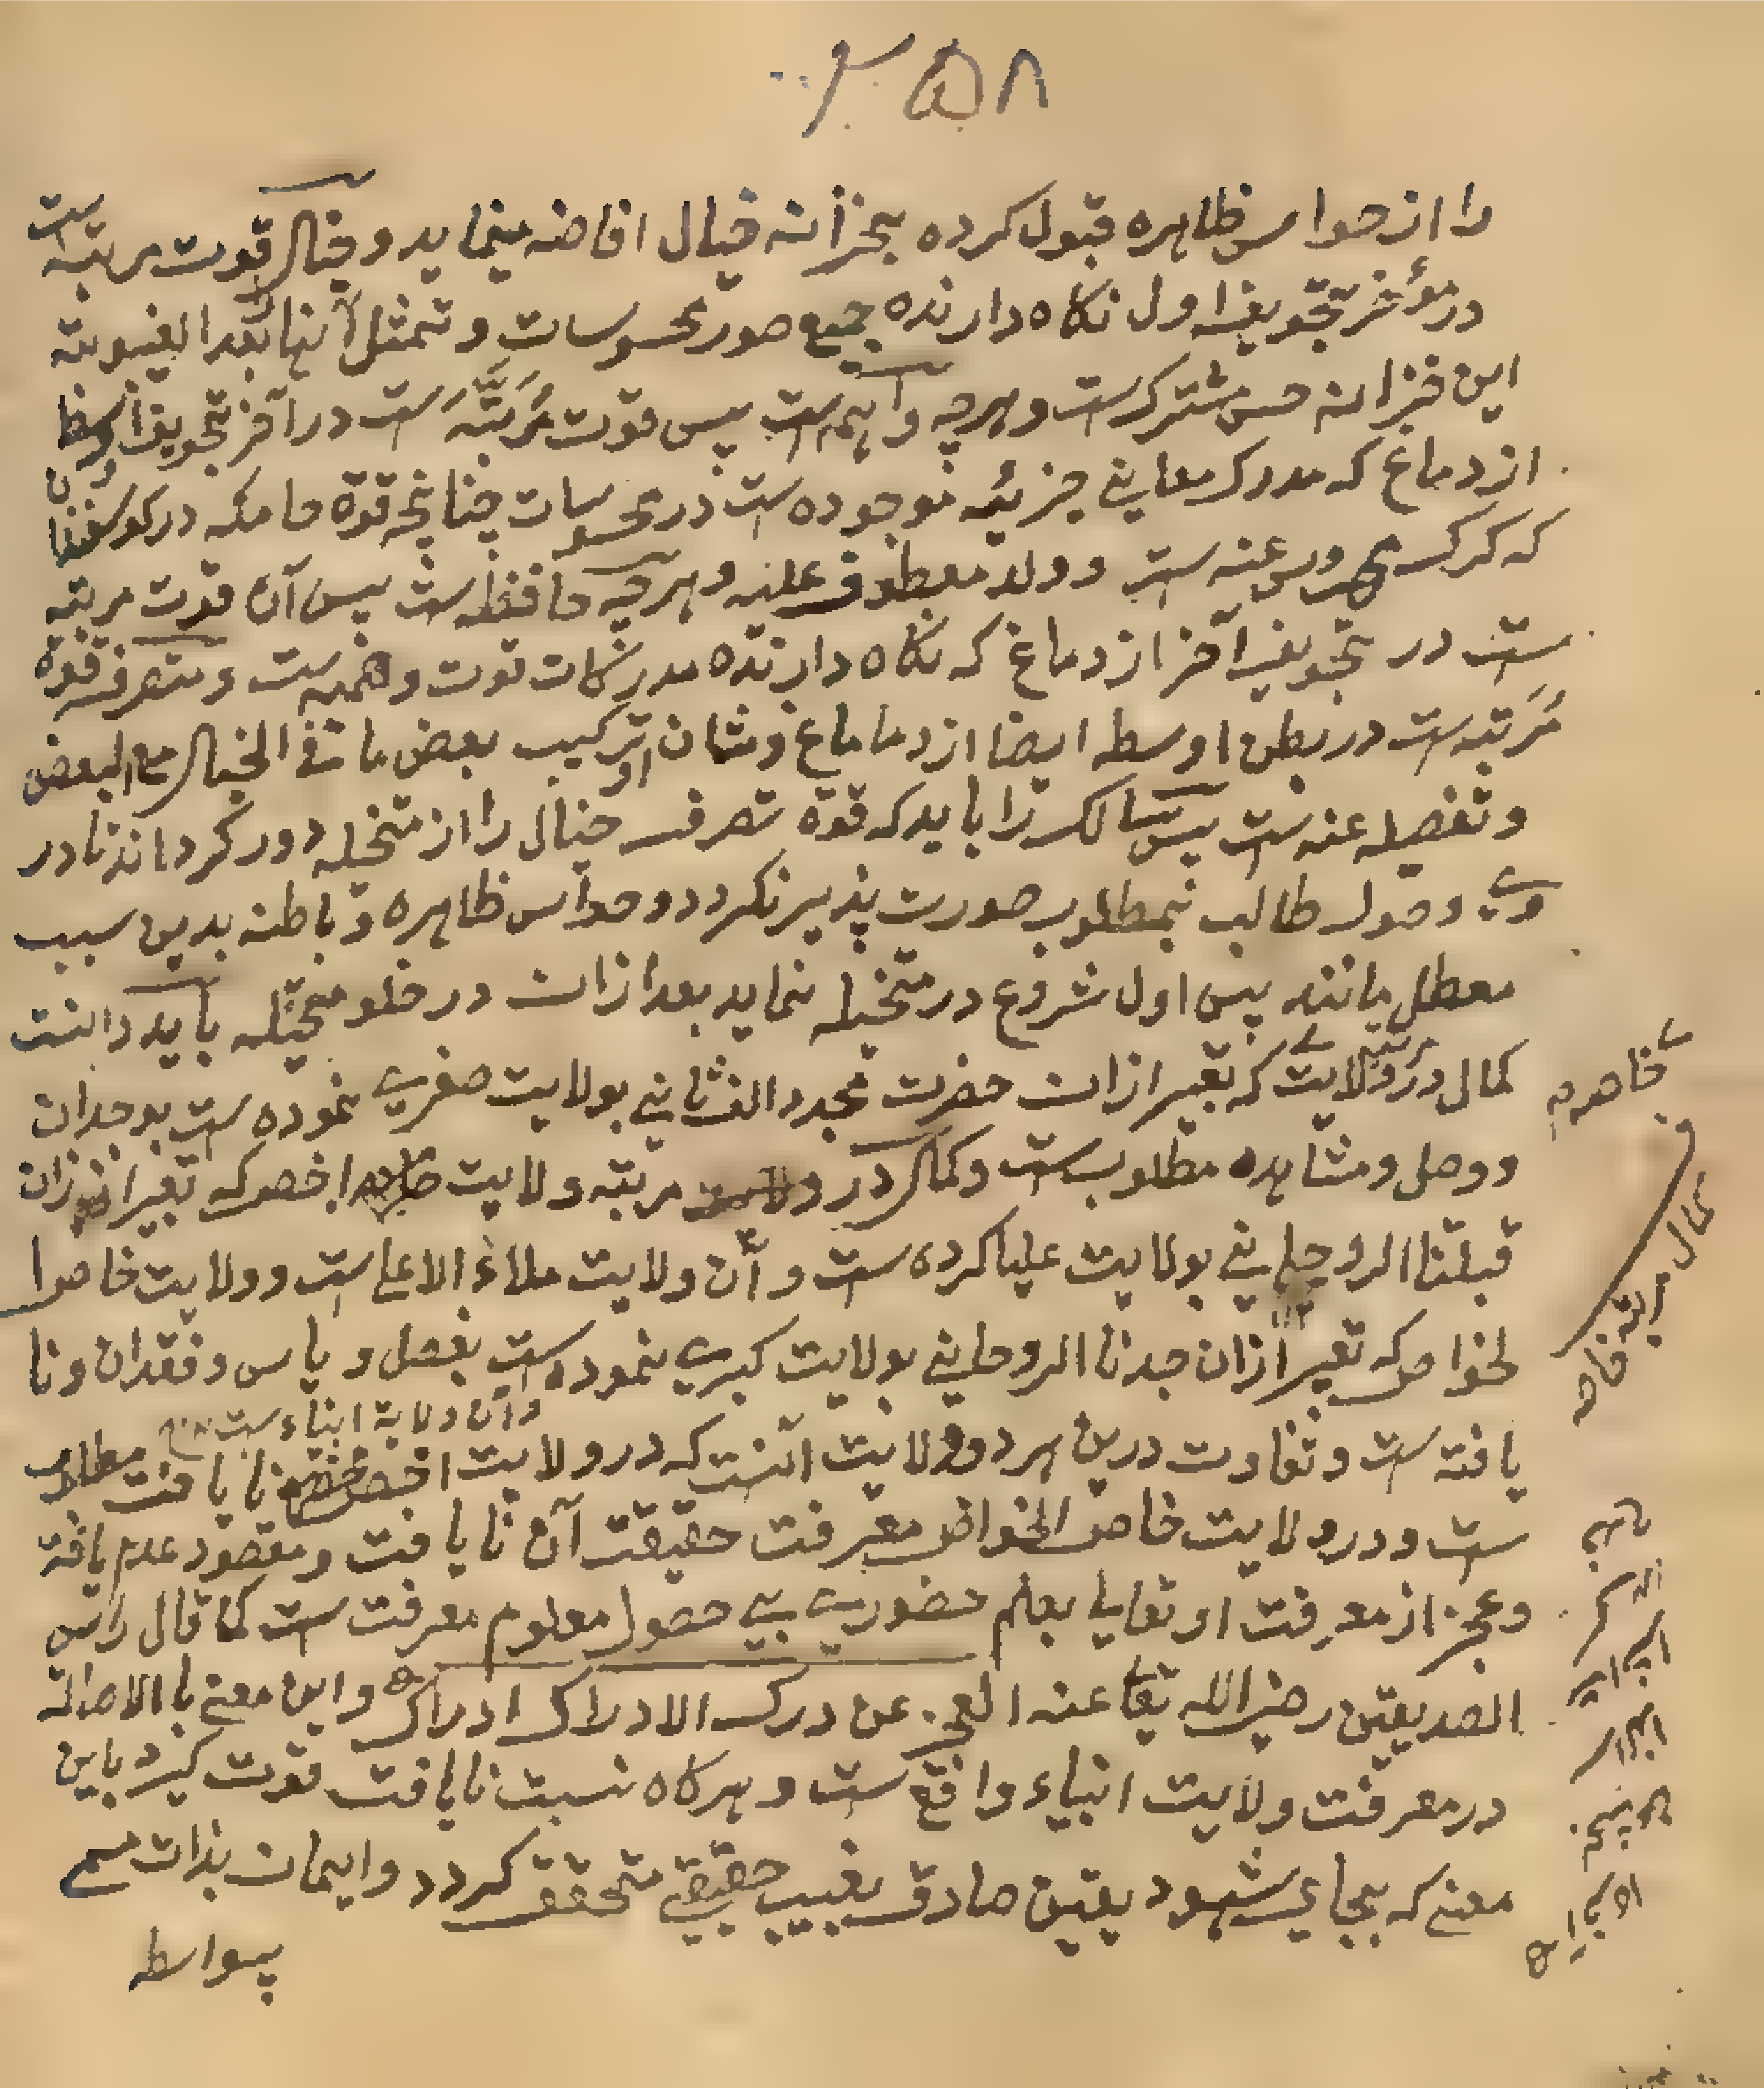 ۳۵۸
را از حواس ظاهره قبول کرده بخزانه خیال افاضه مینماید و خیال قوت مرتبه است
در مؤخر تجویف اول نکاه دارنده جمیع صور محسوسات و تمثل آنها بعد الغیبوبته
این خزانه حس مشترکست و هرچه واهمه است پس قوت مُرَتَّبَه است در آخر تجویف اوسط
از دماغ که مدرک معانی جزئیه موجوده است در محسوسات چنانچه قوة حامکه در کوسفند
که کرک مهروب عنه ست و ولد معطوف علیه و هرچه حافظه ست پس آن قوت مرتبه
ست در تجویف آخر از دماغ که نکاه دارنده مدرکات قوت وهمیه ست و متصرفه قوة
مُرَتبه ست در بطن اوسطه ایضا از دماماغ و شان او ترکیب بعض ما فی الخیال مع البعض
و تفصیله عنه ست پس سالک را باید که قوة تصرف خیال را از متخیله دور کرداند تا در
وی وصول طالب بمطلوب صورت پذیر نکردد و حواس ظاهره و باطنه بدین سبب
معطل مانند پس اول شروع در متخیله نماید بعد ازان در خلو مخیّله باید دانست
کمال در مرتبه ولایت که تعبیر ازان حضرت مجدد الف ثانی بولایت صغری نموده ست بوجدان
و وصل و مشاهده مطلوب ست و کمال در مرتبه ولایت اخص که تعبیر ازان
قبلتنا الروحانی بولایت علیا کرده ست و آن ولایت ملاء الاعلی ست و ولایت خاص ا
لخواص که تعبیر ازان جدنا الروحانی بولایت کبری نموده ست بفصل و یاس و فقدان و نا
و آن ولایة انبیاء ست
یافته ست و تفاوت درین هر دو ولایت آنست که در ولایت اخص نا یافت مطلوب
ست و در ولایت خاص الخواص معرفت حقیقت آن نا یافت و مقصود عدم یافته
و عجز از معرفت او تعالی بعلم حضوری بی حصول معلوم معرفت ست کما قال راس
الصدیقین رضی الله تعا عنه العجز عن درک الادراک ادراک و این معنی با الاصاله
در معرفت ولایت انبیاء واقع ست و هرکاه نسبت نا یافت قوت کیرد باین
معنی که بجای شهود یقین صادق بغیب حقیقی متحقق کردد و ایمان بذات مسمی
بیواسطه